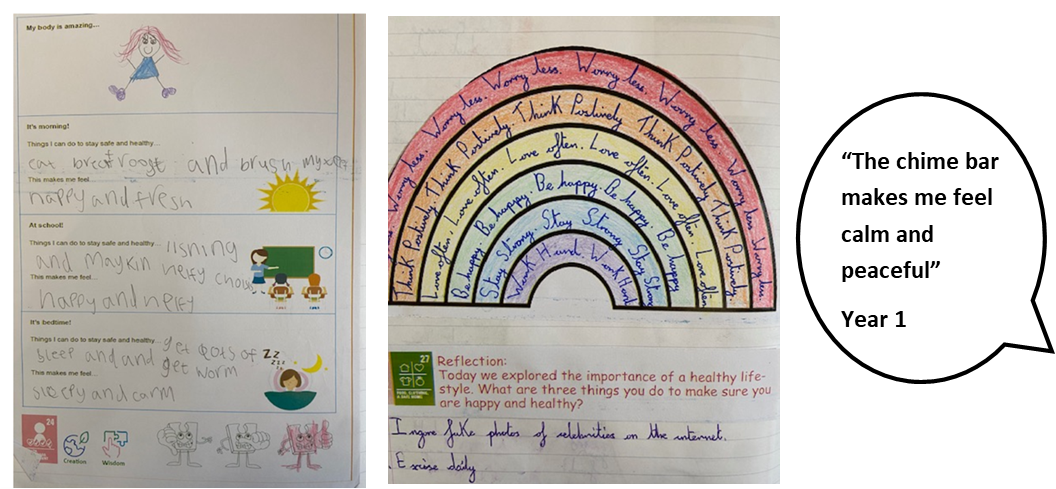 My body is amazing...
It's morning!
Things I can do to stay safe and healthy...
eat and brush my
This makes me feel...
happy and fresh
At school!
Things I can do to stay safe and healthy... lisning
and maykin helfy
This makes me feel...
happy and helfy
It's bedtime!
Things I can do to stay safe and healthy... get of
sleep and and get worm
This makes me feel...
sleepy and carm
24
Creation
Wisdom
Worry less. Worry less. Worry less. Worry less. Worry less. Worry less.
Think Positively. Think Positively. Think Positively. Think Positively.
Love often. Love often. Love often. Love often. Love often.
Be happy. Be happy. Be happy. Be happy. Be happy
Stay Strong. Stay Strong. Stay Strong
Work Hard. Work Hard
27
Reflection:
Today we explored the importance of a healthy life-
style. What are three things you do to make sure you
are happy and healthy?
Ingore fake photos of celebrities on the internet.
Excise daily
“The chime bar
makes me feel
calm and
peaceful”
Year 1